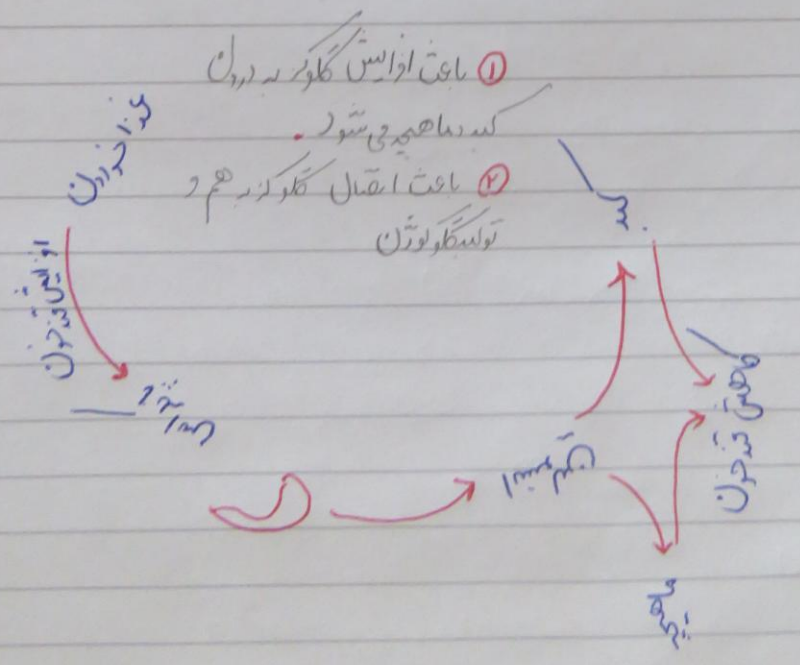 ① باعث افزایش گلوکز به درون
کبد و ماهیچه می شود.
② باعث اتصال گلوکز به هم و
تولید گلیکوژن
غذا خوردن
افزایش قند خون
کبد
انسولین
ماهیچه
کاهش قند خون